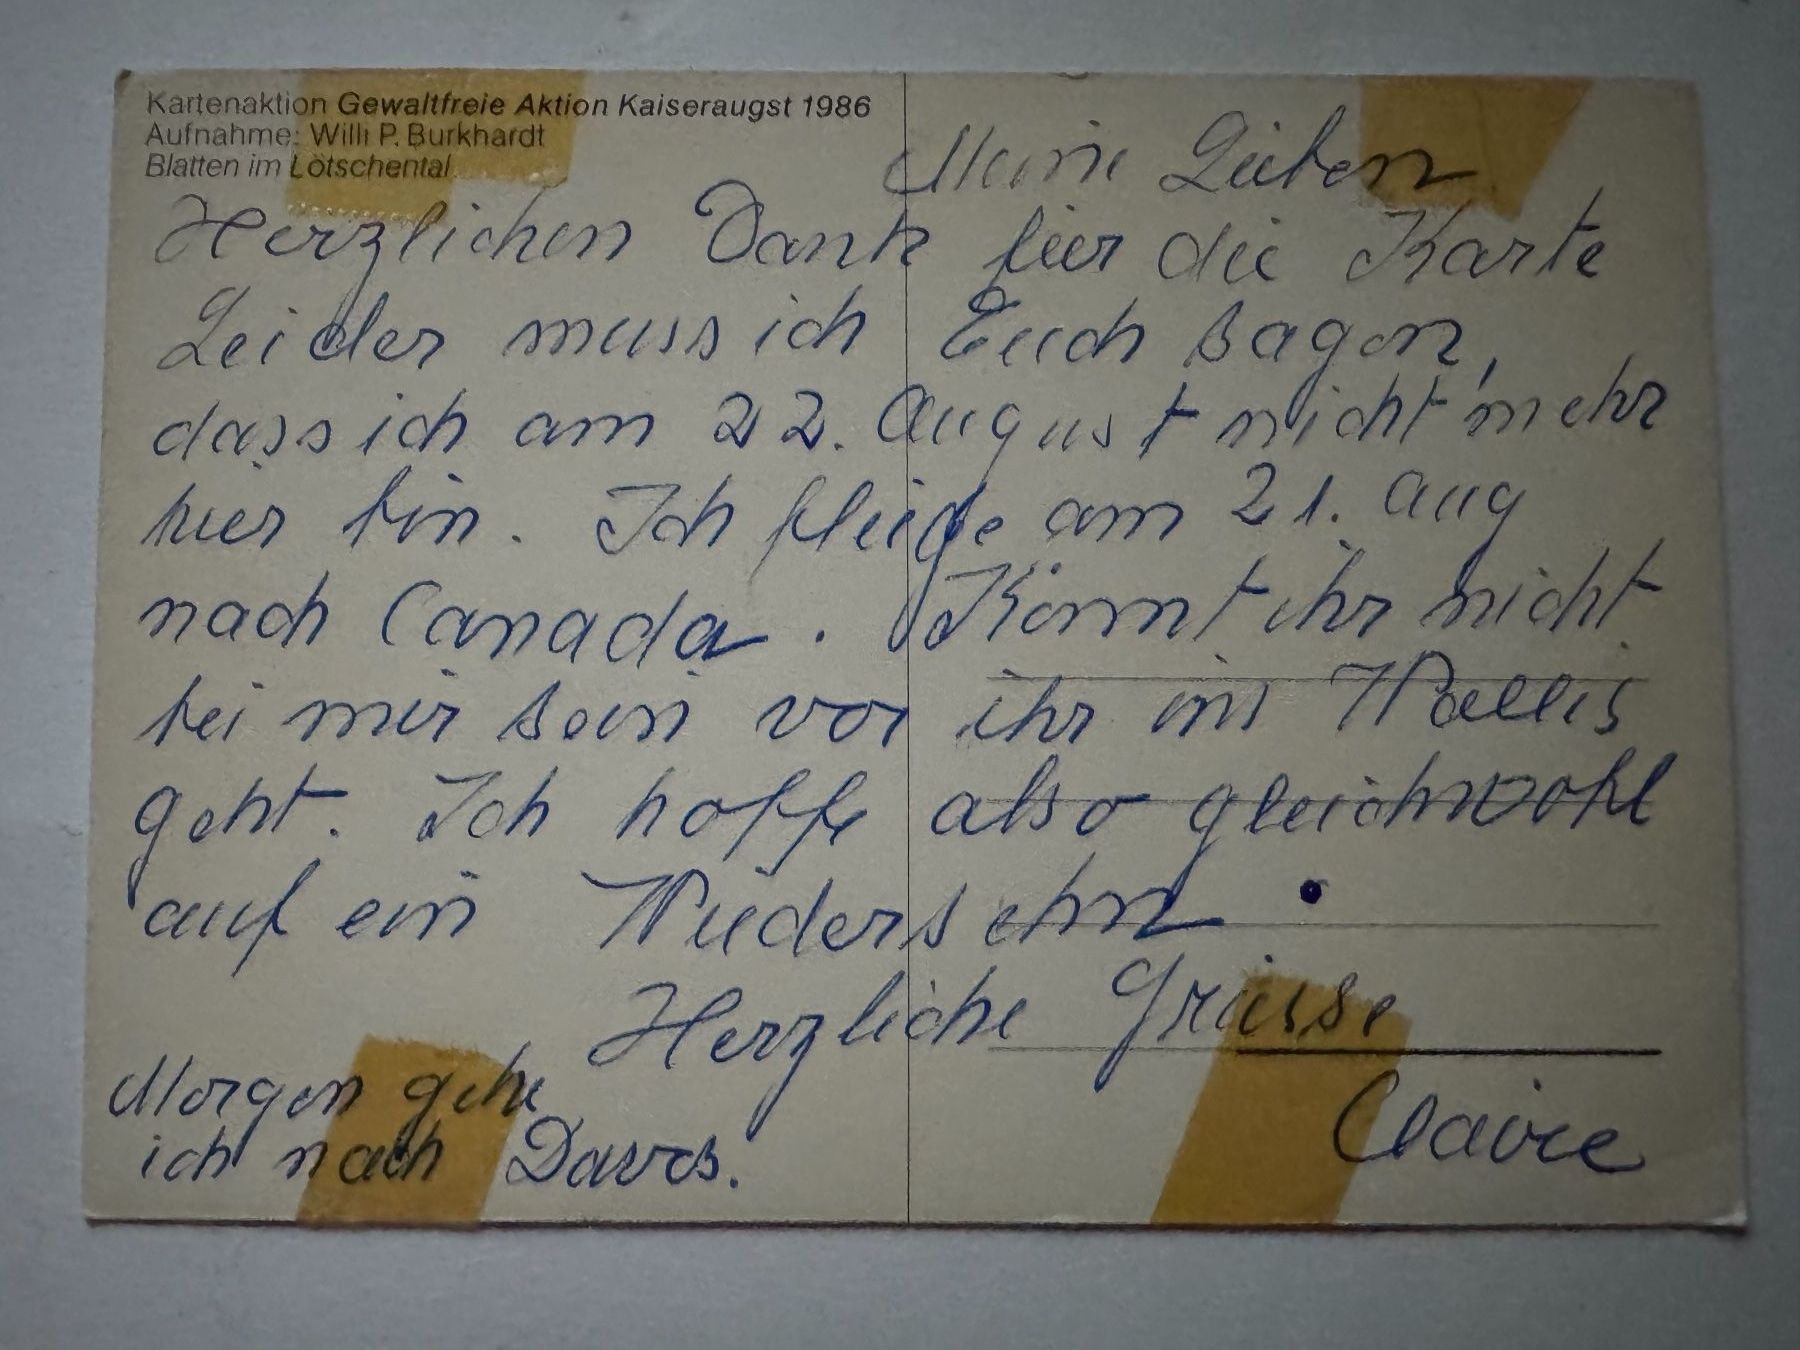 Kartenaktion Gewaltfreie Aktion Kaiseraugst 1986
Aufnahme: Willi P. Burkhardt
Blatten im Lötschental
Meine Lieben
Herzlichen Dank für die Karte
Leider muss ich Euch sagen,
dass ich am 22. August nicht mehr
hier bin. Ich fliege am 21. Aug
nach Canada. Könnt ihr nicht
bei mir sein vor ihr ins Wallis
geht. Ich hoffe also gleichwohl
auf ein Wiedersehn.
Herzliche Grüsse
Claire
Morgen gehe
ich nach Davos.